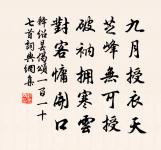 九月授衣天
芝峰無可授
破衲擁寒雲
對客慵開口
釋紹曇偈頌一百一十
七首詞典網集